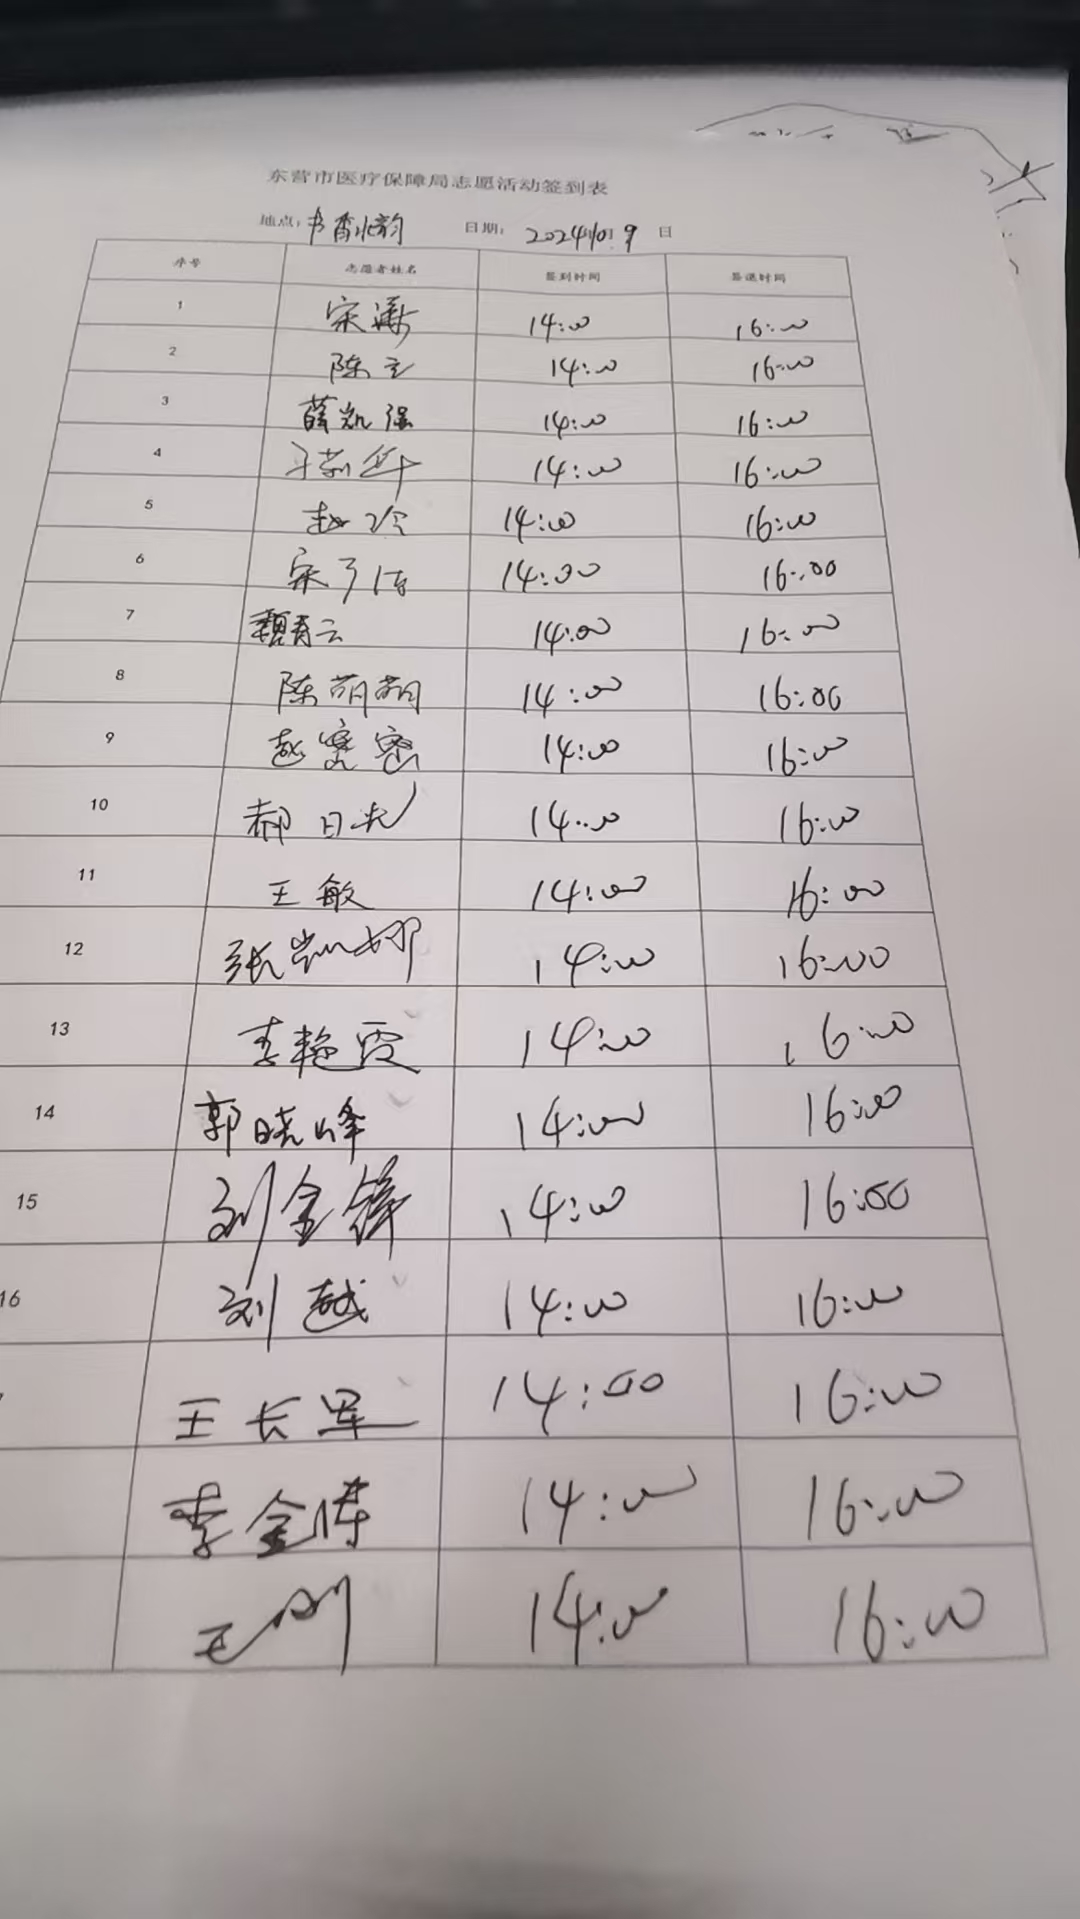 东营市医疗保障局志愿活动签到表
地点：书香水韵 日期：2024.10.9日
序号 志愿者姓名 签到时间 签退时间
1 宋 14:00 16:00
2 陈 14:00 16:00
3 薛凯强 14:00 16:00
4 14:00 16:00
5 赵 14:00 16:00
6 宋 14:00 16:00
7 魏青云 14:00 16:00
8 陈萌萌 14:00 16:00
9 赵密密 14:00 16:00
10 郝日 14:00 16:00
11 王敏 14:00 16:00
12 张凯娜 14:00 16:00
13 李艳霞 14:00 16:00
14 郭晓峰 14:00 16:00
15 刘金锋 14:00 16:00
16 刘越 14:00 16:00
王长军 14:00 16:00
李金涛 14:00 16:00
王刚 14:00 16:00